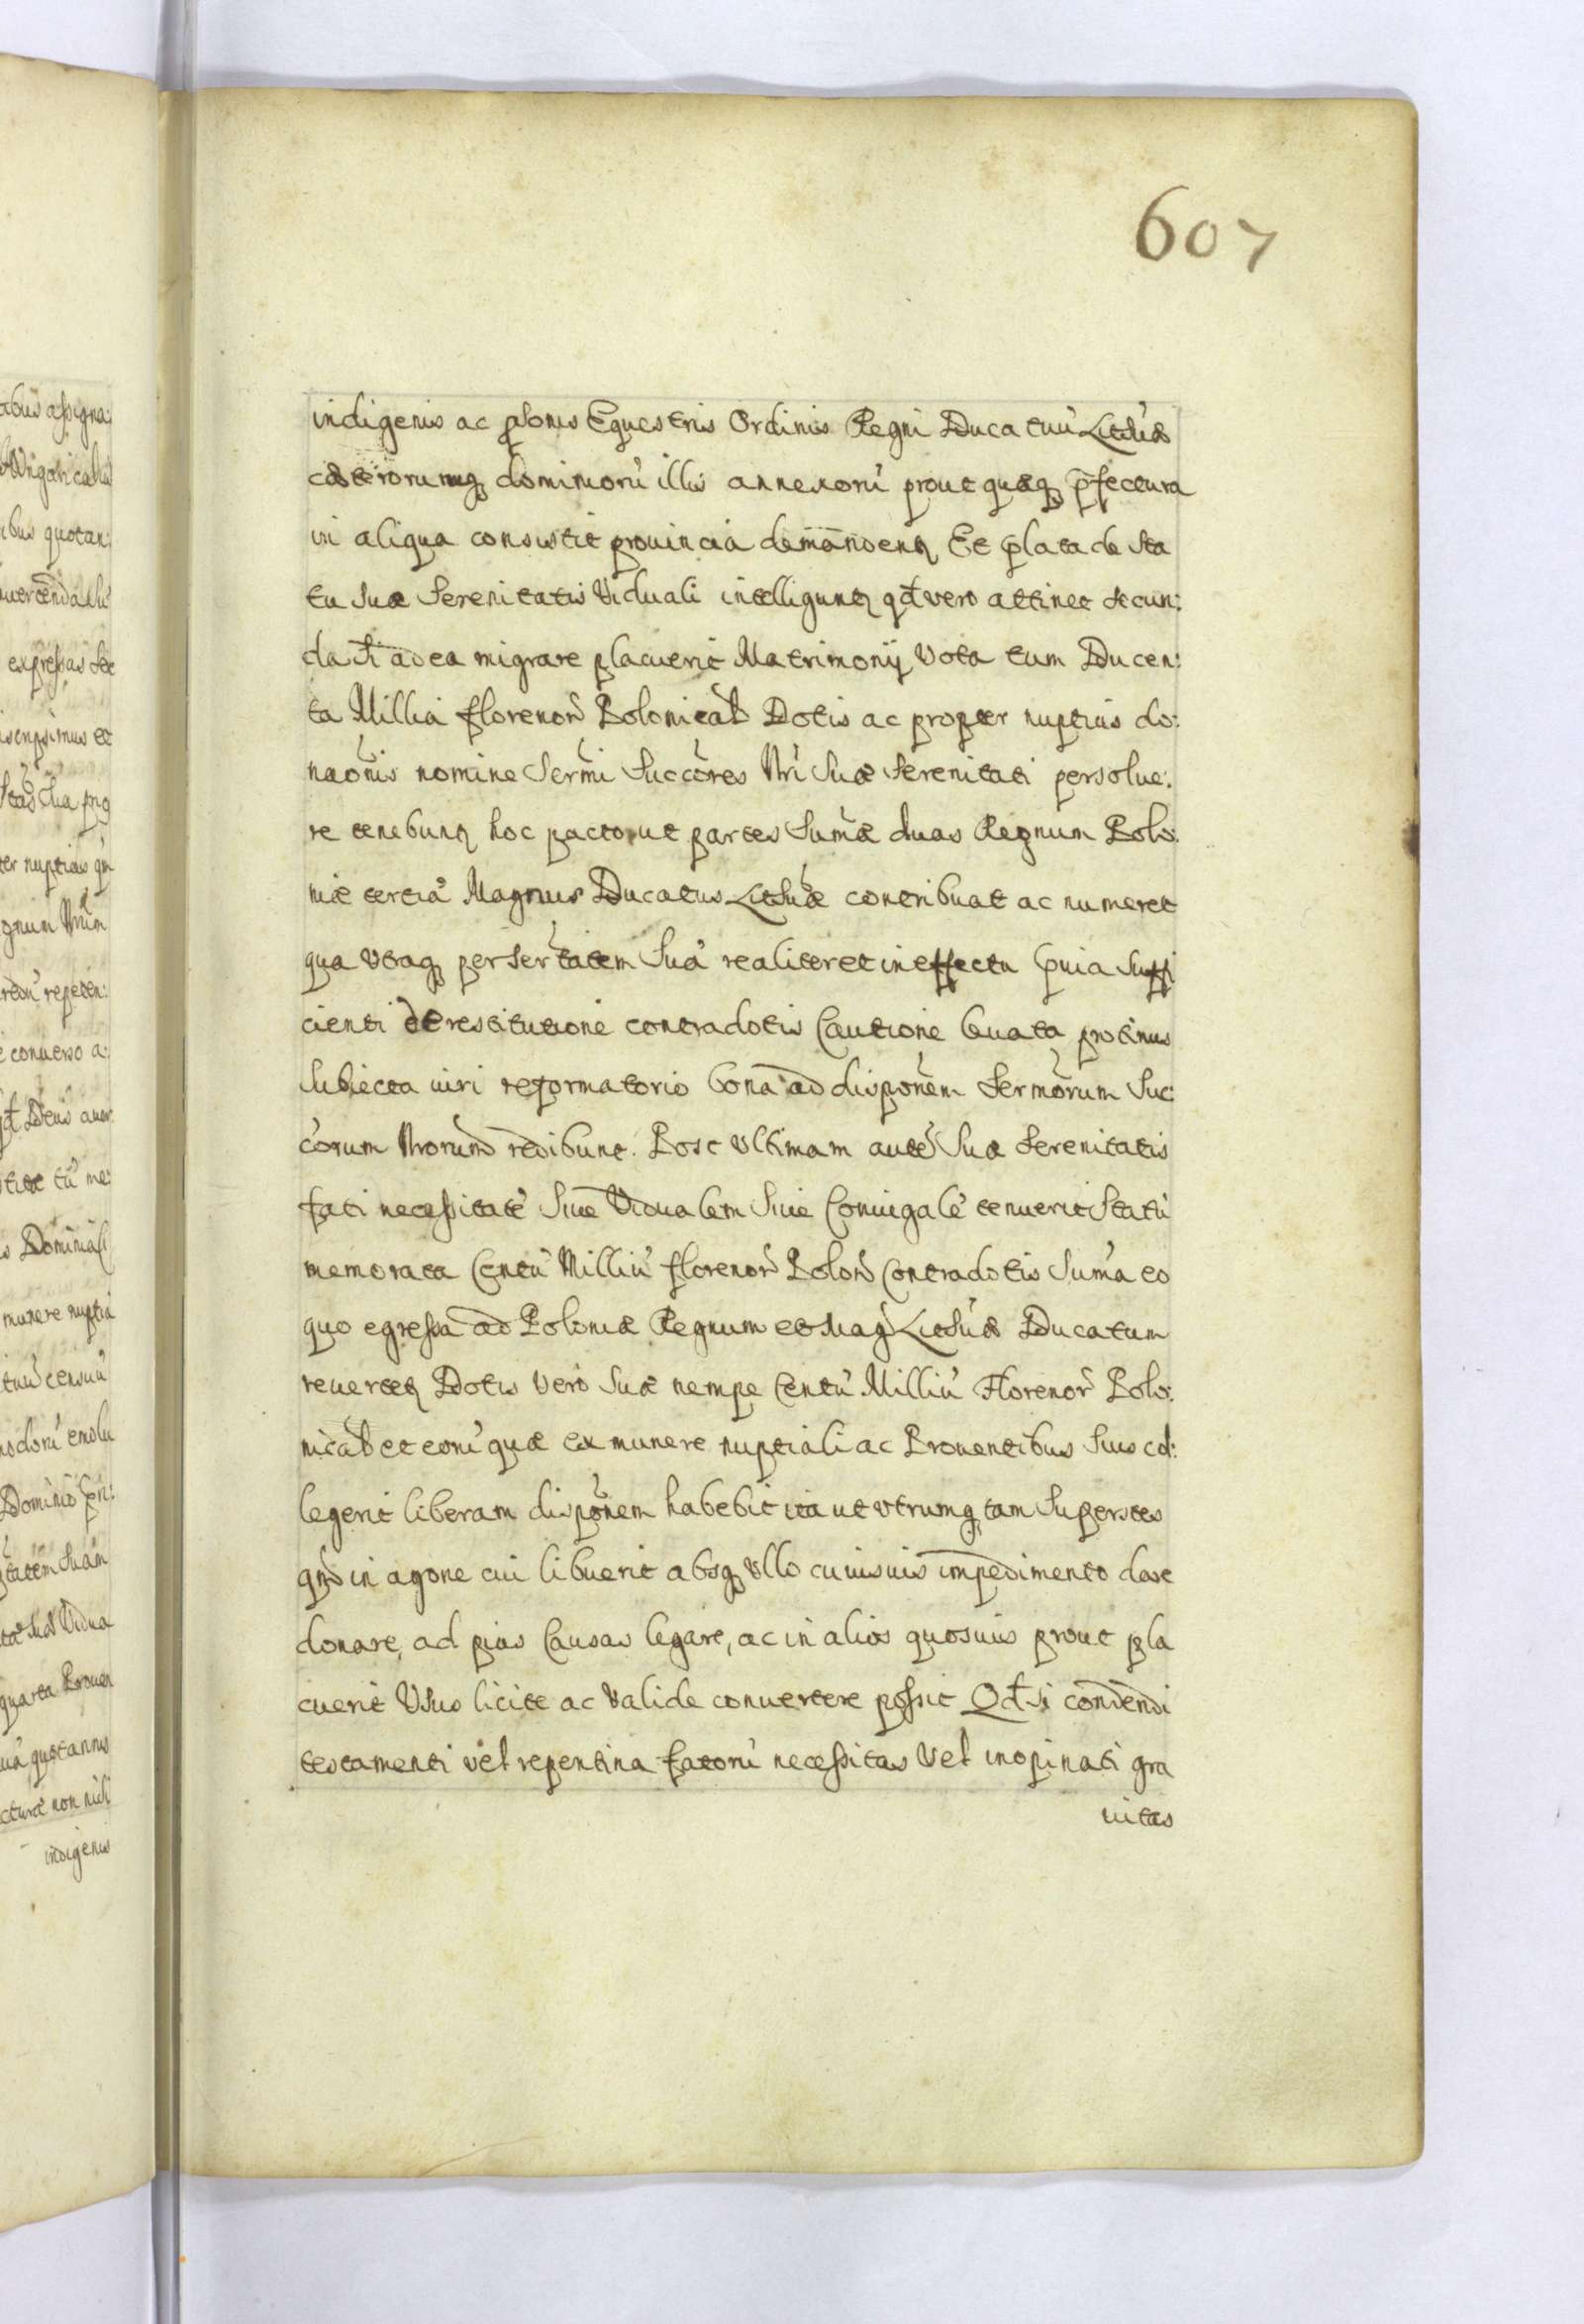 607
indigenis ac psonis Equestris Ordinis Regni Ducatuũ Lithũæ
cæterorumq dominiorũ illis annexorũ prout quæq p̄fectura
in aliqua consistit prouincia demandentʳ Et p̄lata de Sta
tu Suæ Serenitatis Viduali intelliguntʳ qđ vero attinet secun:
da si ad ea migrare placuerit Matrimonij Vota tum Ducen:
ta Millia florenoꝝ Polonicaliũ Dotis ac propter nuptias do:
naõnis nomine Sermi Succõres Nri Suæ Serenitati persolue:
re tenebuntʳ hoc pacto, ut partes Sum̃æ duas Regnum Polo:
niæ tertiã Magnus Ducatus Lithũæ contribuat ac numeret
qua vtraq per Sertatem Suã realiter et in effectu p̄uia suffi
cienti de restitutione contradotis Cautione leuata protinus
Subiecta iuri reformatorio bona ad disponẽm Sermõrum Suc:
cõrum Nrorum redibunt. Post Vltimam autẽ Suæ Serenitatis
fati necessitatẽ Siue Vidualem Siue Coniugalẽ tenuerit Statũ
memorata Centũ Milliũ florenoꝝ Polon Contradotis Sum̃a eo
quo egressa ad Poloniæ Regnum et Mag Lithũæ Ducatum
reuertetʳ Dotis Vero Suæ nempe Centũ Milliũ Florenoꝝ Polo:
nicaliũ et eorũ quæ ex munere nuptiali ac Prouentibus Suis col:
legerit liberam disponẽm habebit ita ut vtrumq tam Superstes
qm̃ in agone cui libuerit absq Vllo cuiusuis impedimento dare
donare, ad pias Causas legare, ac in alios quosuis prout pla
cuerit Vsus licite ac Valide conuertere possit Qđ si condendi
testamenti vel repentina fatorũ necessitas Vel inopinati gra
uitas